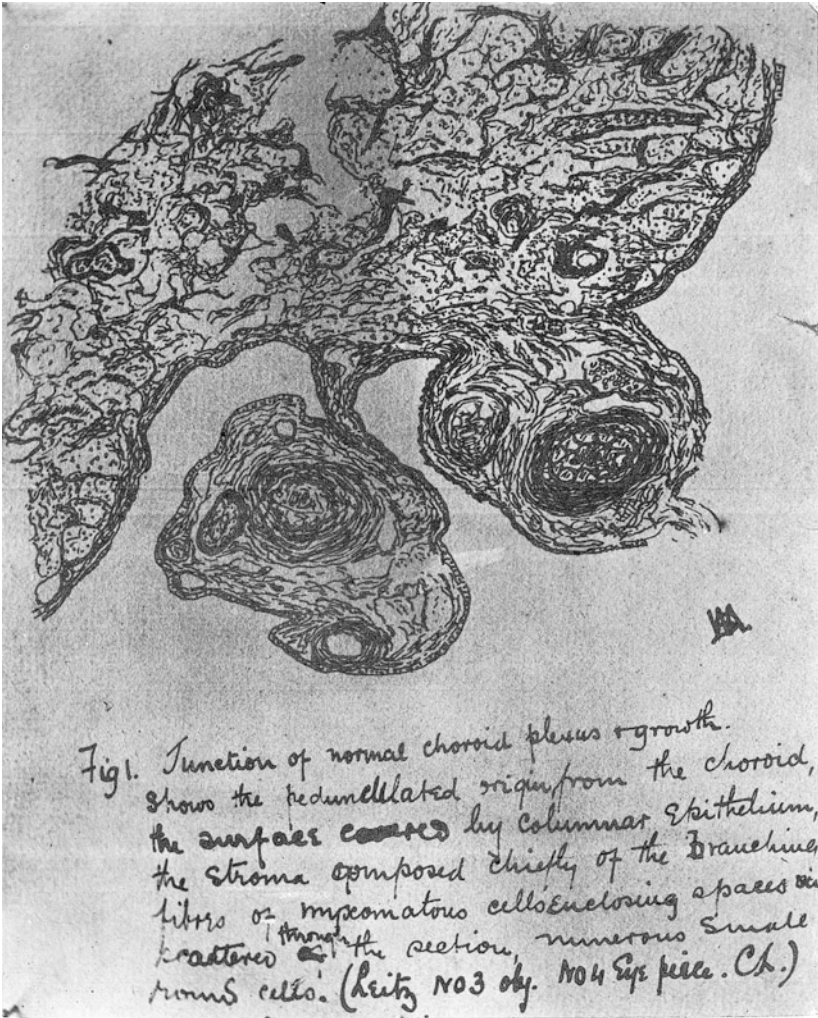 Fig 1. Junction of normal choroid plexus & growth.
Shows the pedunculated origin from the choroid,
the surface covered by columnar Epithelium,
the Stroma composed chiefly of the Branching
fibres of myxomatous cells Enclosing spaces
scattered through the section, numerous Small
round cells. (Leitz No 3 obj. No 4 Eye piece. C.L.)